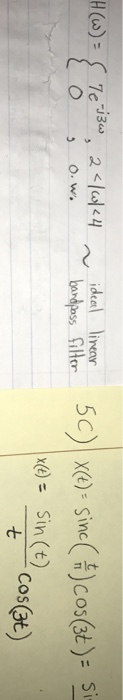 H(ω) = { 7e^-j3ω, 2 < |ω| < 4 ~ ideal linear
0 , o.w. bandpass filter
5c) x(t) = sinc(t/π) cos(3t) =
x(t) = sin(t)/t cos(3t)